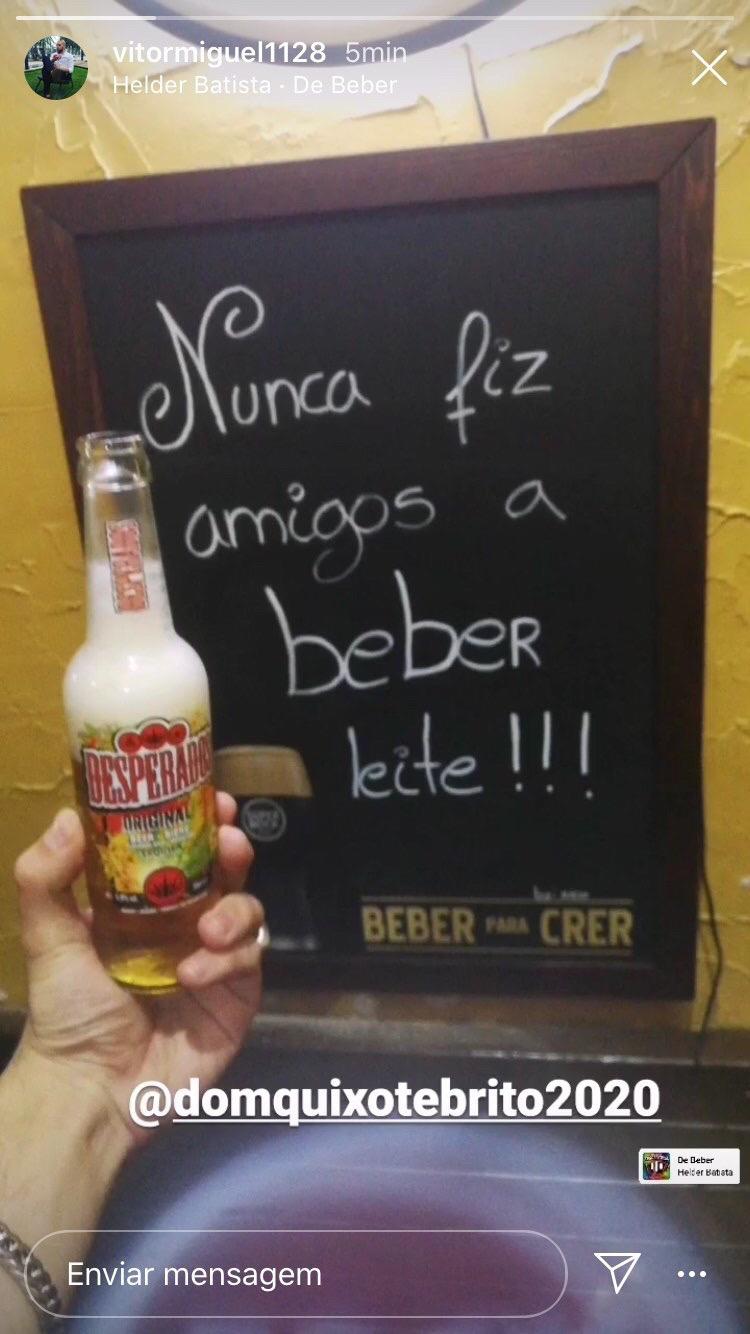 vitormiguel1128 5min
Helder Batista · De Beber
Nunca fiz
amigos a
beber
leite!!!
DESPERADOS
ORIGINAL
SUPER
BOCK
BEBER PARA CRER
@domquixotebrito2020
De Beber
Helder Batista
Enviar mensagem